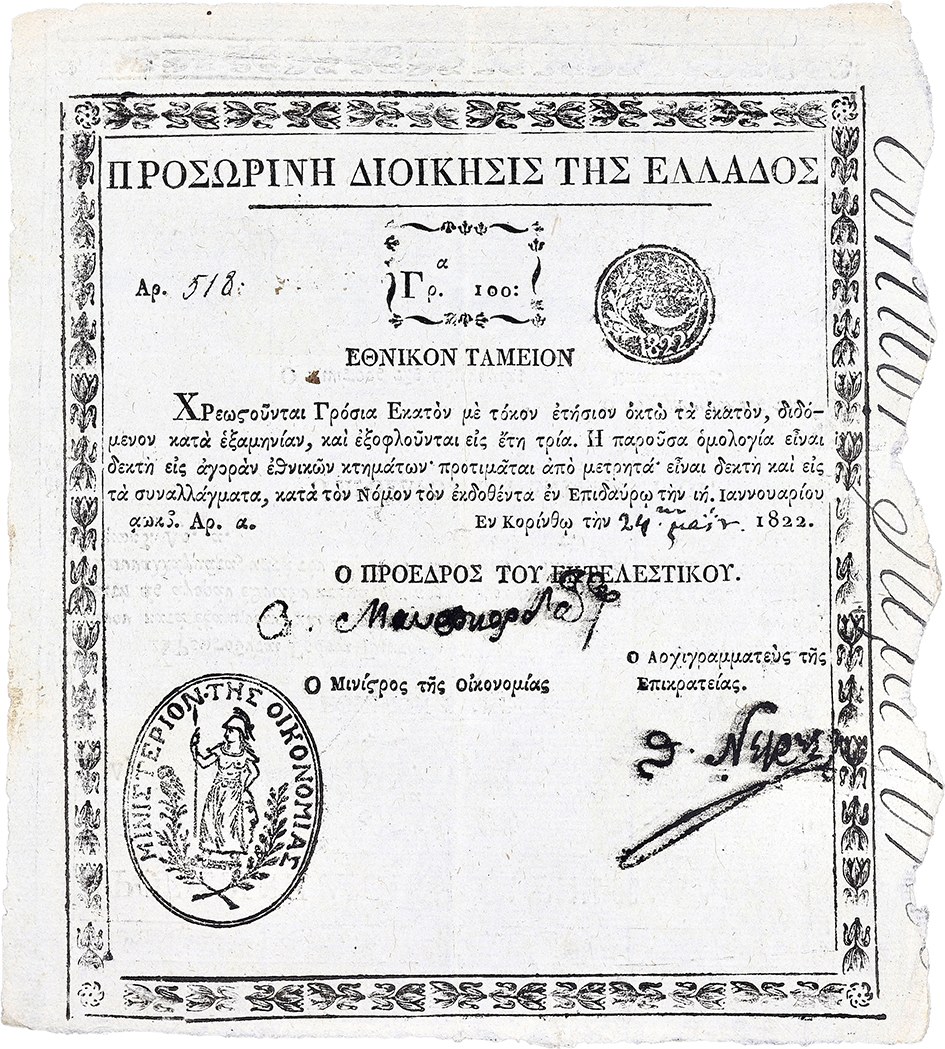 ΠΡΟΣΩΡΙΝΗ ΔΙΟΙΚΗΣΙΣ ΤΗΣ ΕΛΛΑΔΟΣ
Αρ. 518:
α
Γρ. 100:
1822
ΕΘΝΙΚΟΝ ΤΑΜΕΙΟΝ
ΧΡεωϛοῦνται Γρόσια Εκατὸν μὲ τόκον ἐτήσιον ὀκτὼ τὰ ἑκατὸν, διδό-
μενον κατὰ ἑξαμηνίαν, καὶ ἐξοφλοῦνται εἰς ἔτη τρία. Η παροῦσα ὁμολογία εἶναι
δεκτὴ εἰς ἀγορὰν ἐθνικῶν κτημάτων· προτιμᾶται ἀπὸ μετρητά· εἶναι δεκτὴ καὶ εἰς
τὰ συναλλάγματα, κατὰ τὸν Νόμον τὸν ἐκδοθέντα ἐν Επιδαύρῳ τὴν ιή. Ιαννουαρίου
αωκβ. Αρ. α. Εν Κορίνθῳ τὴν 24 μαΐου 1822.
Ο ΠΡΟΕΔΡΟΣ ΤΟΥ ΕΚΤΕΛΕΣΤΙΚΟΥ.
Ο Αρχιγραμματεὺς τῆς
Ο Μινίϛρος τῆς Οἰκονομίας Επικρατείας.
Θ. Νέγρης
ΜΙΝΙΣΤΕΡΙΟΝ·ΤΗΣ ΟΙΚΟΝΟΜΙΑΣ